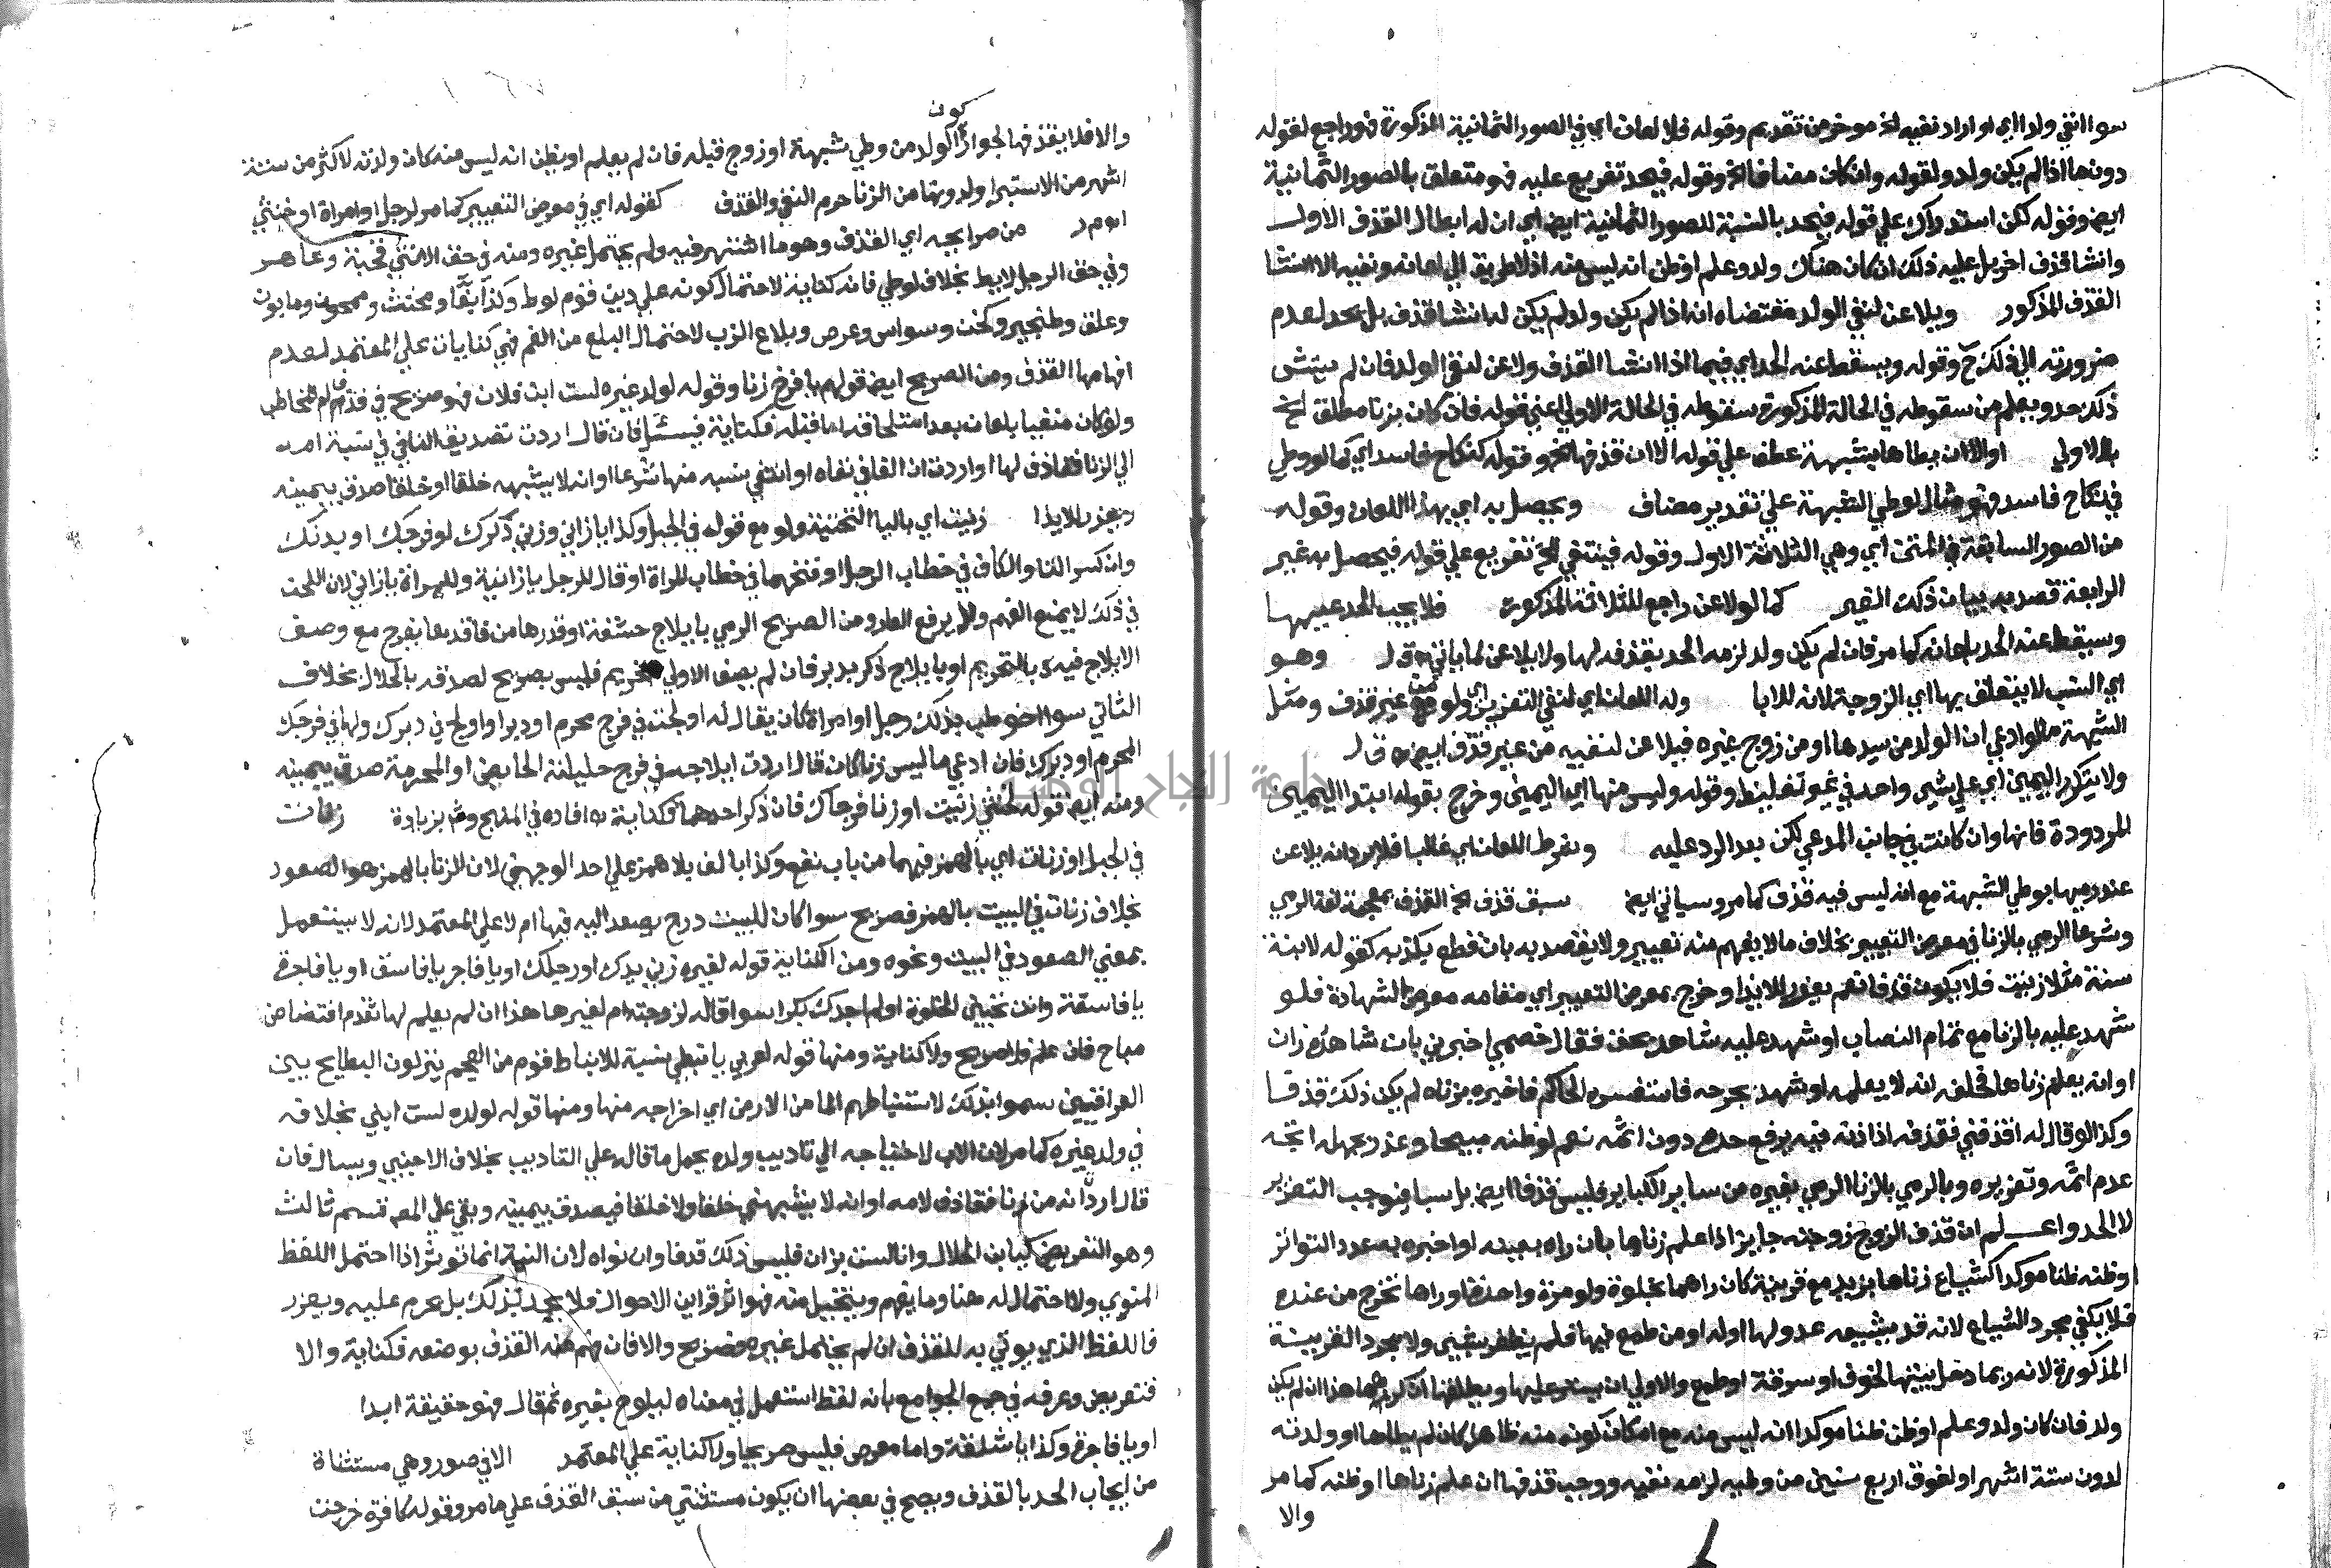 سوا انفي ولدا اي او اراد نفيه الخ موخر من تقديم وقوله فلا لعان اي في الصور الثمانية المذكورة فهو راجع لقوله
دونها اذا لم يكن ولد ولقوله وان كان مضافا الخ وقوله فيحد تفريع عليه فهو متعلق بالصور الثمانية
ايضا وقوله لكن استدراك علي قوله فيحد بالنسبة للصور الثمانية ايضا اي ان له ابطال القذف الاول
وانشا قذف اخر بل عليه ذلك ان كان هناك ولد وعلم او ظن انه ليس منه اذ لا طريق الي لعانه ونفيه الا انشا
القذف المذكور ويلاعن لنفي الولد مقتضاه انه اذا لم يكن ولد لم يكن له انشا قذف بل يحد لعدم
ضرورته الي ذلك ح وقوله ويسقط عنه الحد اي فيما اذا انشا القذف ولاعن لنفي الولد فان لم ينشي
ذلك حد ويعلم من سقوطه في الحالة المذكورة سقوطه في الحالة الاولي اعني قوله فان كان بزنا مطلق الخ
بالاولي او الا ان يطاها بشبهة عطف علي قوله الا ان قذفها الخ وقوله كنكاح فاسد اي كالوطي
في نكاح فاسد فهو مثال لوطي الشبهة علي تقدير مضاف ويحصل به اي بهذا اللعان وقوله
من الصور السابقة في المتن اي وهي الثلاثة الاول وقوله فينتفي الخ تفريع علي قوله فيحصل به غير
الرابعة قصد به بيان ذلك الغير كما لو لاعن راجع للثلاثة المذكورة فلا يجب الحد عليها
وسيقط عنه الحد بلعانه كما مر فان لم يكن ولد لزمه الحد بقذفه لها ولا يلاعن لما ياتي ه ق ل وهو
اي النسب لا يتعلق بها اي الزوجة لانه للابا وله اللعان اي لنفي التعزير اي ولو من غير قذف ومثل
الشبهة ما لو ادعي ان الولد من سيدها او من زوج غيره فيلاعن لنفيه من غير قذف ايضا ه ق ل
ولا يتكرر اليمين اي علي شي واحد في غير تغليظ وقوله وليس منها اي اليمين وخرج بقوله ابتدا اليمين
المردودة فانها وان كانت في جانب المدعي لكن بعد الرد عليه وبفرط اللعان اي غالبا فلا يرد انه يلاعن
عند رميها بوطي الشبهة مع انه ليس فيه قذف كما مر وسياتي ايضا سبق قذف الخ القذف بمعجمة لغة الرمي
وشرعا الرمي بالزنا في معرض التعيير بخلاف ما لا يفهم منه تعيير ولا يقصد به بان قطع بكذبه كقوله لابنة
سنة مثلا زنيت فلا يكون قذفا نعم يعزر للايذا وخرج بمعرض التعيير اي مقامه معرض الشهادة فلو
شهد عليه بالزنا مع تمام النصاب او شهد عليه شاهد بحق فقال خصمي اخبرني بان شاهده زان
او انه يعلم زناها فحلفه انه لا يعلمه او شهد بجرحه فاستفسره الحاكم فاخبره بزناه لم يكن ذلك قذفا
وكذا لو قال له اقذفني فقذفه اذ اذنه فيه يرفع حده دون اثمه نعم لو ظنه مبيحا وعذر بجهله اتجه
عدم اثمه وتعزيره وبالرمي بالزنا الرمي بغيره من ساير الكباير فليس قذفا ايضا بل سبا فيوجب التعزير
لا الحد واعلم ان قذف الزوج زوجته جايز اذا علم زناها بان راه بعينه او اخبره به عدد التواتر
او ظنه ظنا موكدا كشياع زناها بزيد مع قرينة كان راهما بخلوة ولو مرة واحدة او راها تخرج من عنده
فلا يكفي مجرد الشياع لانه قد يشيعه عدو لها او له او من طمع فيها فلم يظفر بشي ولا مجرد القرينة
المذكورة لانه ربما دخل بيتها لخوف او سرقة او طمع والاولي ان يستر عليها ويطلقها ان كرهها هذا ان لم يكن
ولد فان كان ولد وعلم او ظن ظنا موكدا انه ليس منه مع امكان كونه منه ظاهرا كان لم يطاها او ولدته
لدون ستة اشهر او لفوق اربع سنين من وطيه لزمه نفيه ووجب قذفها ان علم زناها او ظنه كما مر
والا
كون
والا فلا يقذفها لجواز الولد من وطي شبهة او زوج قبله فان لم يعلم او يظن انه ليس منه كان ولدته لاكثر من ستة
اشهر من الاستبرا ولدونها من الزنا حرم النفي والقذف كقوله اي في معرض التعيير كما مر لرجل او امراة او خنثي
من صرايحه اي القذف وهو ما اشتهر فيه ولم يحتمل غيره ومنه في حق الانثي قحبة وعاهر
وفي حق الرجل لايط بخلاف لوطي فانه كناية لاحتمال كونه علي دين قوم لوط وكذا بغا ومخنث وما بون
وعلق وطنجير وسواس وعرص وبلاع الزب لاحتمال البلع من الفم فهي كنايات علي المعتمد لعدم
افهامها القذف ومن الصريح ايضا قولهم يا فرخ زنا وقوله لولد غيره لست ابن فلان فهو صريح في قذف ام المخاطب
ولو كان منفيا بلعان بعد استلحاقه اما قبله فكناية فيستفسر فان قال اردت تصديق النافي في نسبة امه
الي الزنا فقاذف لها او اردت ان النافي نفاه او انتفي نسبه منها شرعا او انه لا يشبهه خلقا او خلقا صدق بيمينه
ويعزر للايذا زنيت اي باليا التحتية ولو مع قوله في الجبل وكذا يا زاني وزني ذكرك او فرجك او بدنك
وان كسر التا والكاف في خطاب الرجل او فتحهما في خطاب المراة او قال للرجل يا زانية وللمراة يا زاني لان اللحن
في ذلك لا يمنع الفهم ولا يرفع العار ومن الصريح الرمي بايلاج حشفة او قدرها من فاقدها بفرج مع وصف
الايلاج فيه بالتحريم او بايلاج ذكر بدبر فان لم يصف الاول بتحريم فليس بصريح لصدقه بالحلال بخلاف
الثاني سوا اخوطب بذلك رجل او امراة كان يقال له اولجت في فرج محرم او دبر او اولج في دبرك ولها في فرجك
المحرم او دبرك فان ادعي ما ليس زنا كان قال اردت ايلاجه في فرج حليلته الحايض او المحرمة صدق بيمينه
ومنه ايضا قوله لخنثي زنيت او زنا فرجاك فان ذكر احدهما فكناية ه افاده في المنهج وش بزيادة زنات
في الجبل او زنات اي بالهمز فيهما من باب نفع وكذا بالف بلا همز علي احد الوجهين لان الزنا بالهمز هو الصعود
بخلاف زنات في البيت بالهمز فصريح سوا كان للبيت درج يصعد اليه فيها ام لا علي المعتمد لانه لا يستعمل
بمعني الصعود في البيت ونحوه ومن الكناية قوله لغيره زني يدك او رجلك او يا فاجر يا فاسق او يا فاجرة
يا فاسقة وانت تحبين الخلوة او لم اجدك بكرا سوا قاله لزوجته ام لغيرها هذا ان لم يعلم لها تقدم افتضاض
مباح فان علم فلا صريح ولا كناية ومنها قوله لعربي يا نبطي نسبة للانباط قوم من العجم ينزلون البطايح بين
العراقيين سموا بذلك لاستنباطهم الما من الارض اي اخراجه منها ومنها قوله لولده لست ابني بخلافه
في ولد غيره كما مر لان الاب لاحتياجه الي تاديب ولده يحمل ما قاله علي التاديب بخلاف الاجنبي ويسال فان
قال اردت انه من زنا فقاذف لامه او انه لا يشبهني خلقا ولا خلقا فيصدق بيمينه وبقي علي المص قسم ثالث
وهو التعريض كيا ابن الحلال وانا لست بزان فليس ذلك قذفا وان نواه لان النية انما توثر اذا احتمل اللفظ
المنوي ولا احتمال له هنا وما يفهم ويتخيل منه فهو اثر قراين الاحوال فلا يحد بذلك بل يحرم عليه ويعزر
فاللفظ الذي يوتي به للقذف ان لم يحتمل غيره فصريح والا فان فهم منه القذف بوضعه فكناية والا
فتعريض وعرفه في جمع الجوامع بانه لفظ استعمل في معناه ليلوح بغيره ثم قال فهو حقيقة ابدا
او يا فاجرة وكذا يا شلقة واما معرص فليس صريحا ولا كناية علي المعتمد الا في صور وهي مستثناة
من ايجاب الحد بالقذف ويصح في بعضها ان يكون مستثني من سبق القذف علي ما مر وقوله كافرة خرجت